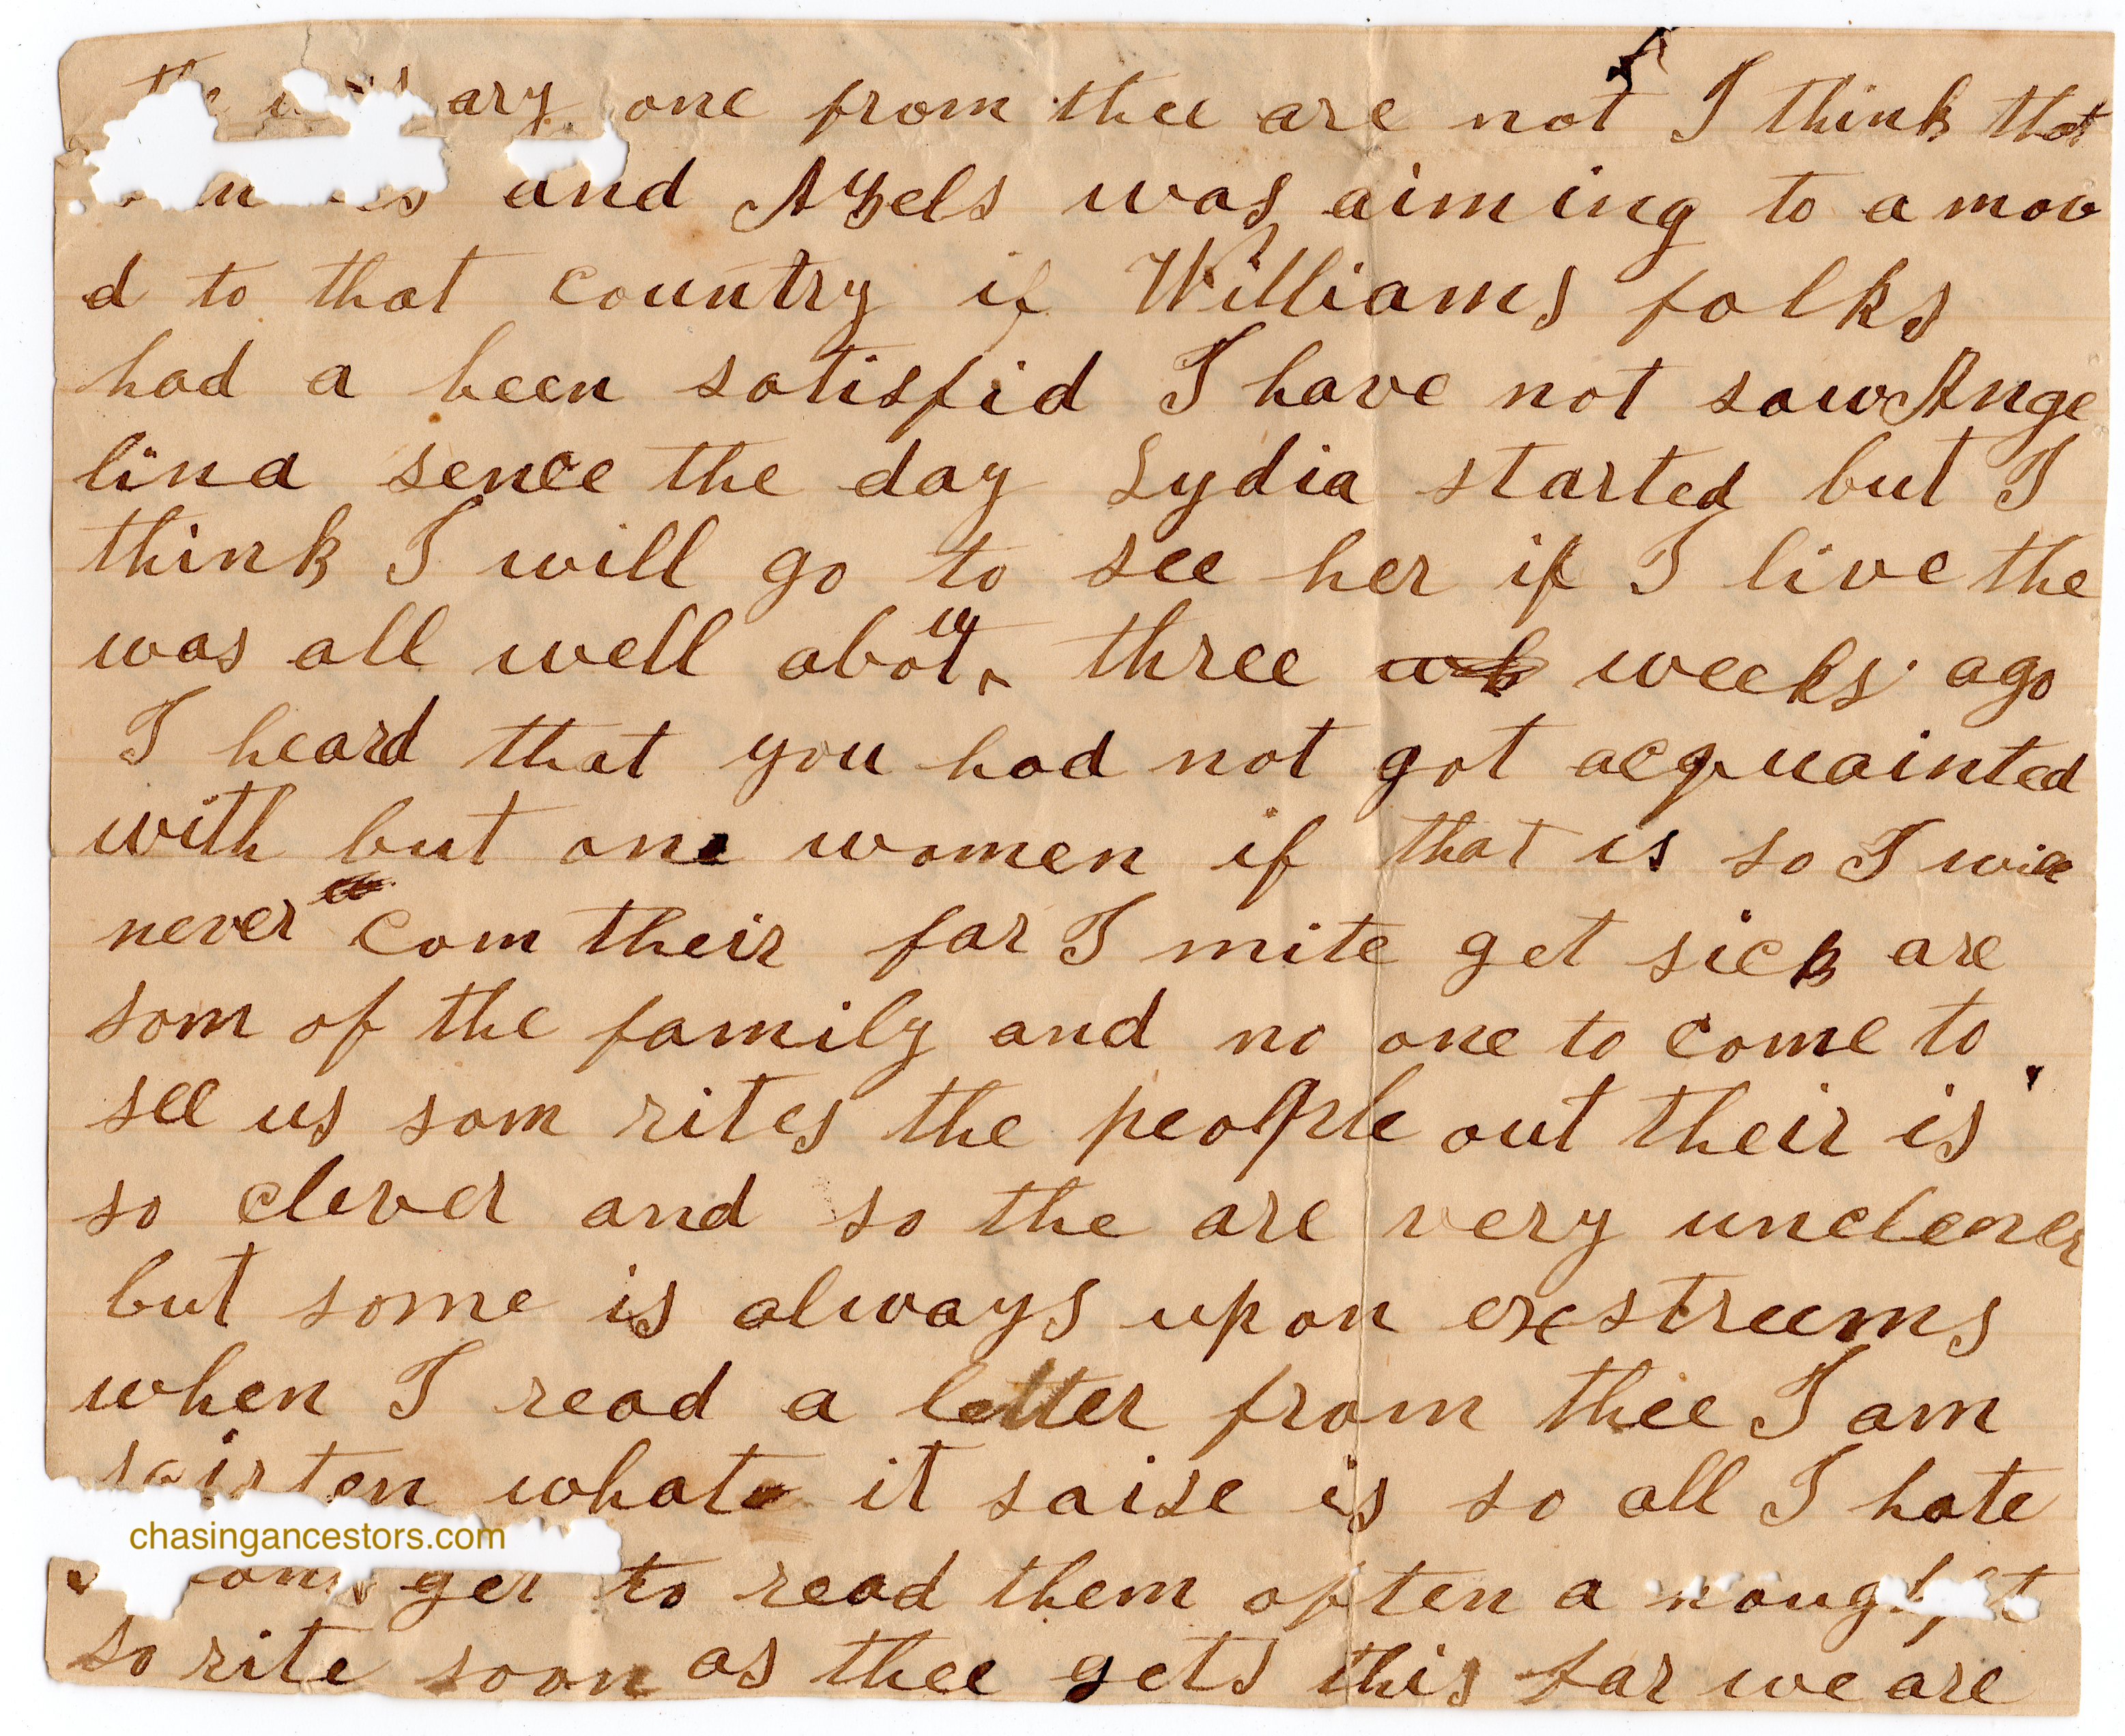 the ary one from thee are not I think that
and Azels was aiming to a mov
d to that country if Williams folks
had a been satisfid I have not saw Ange
lina sence the day Lydia started but I
think I will go to see her if I live the
was all well about three weeks ago
I heard that you had not got acquainted
with but one women if that is so I will
never com their for I mite get sick are
som of the family and no one to come to
see us som rites the people out their is
so clever and so the are very unclener
but some is always upon exstreems
when I read a letter from thee I am
sairten what it saise is so all I hate
chasingancestors.com
get to read them often a
so rite soon as thee gets this for we are